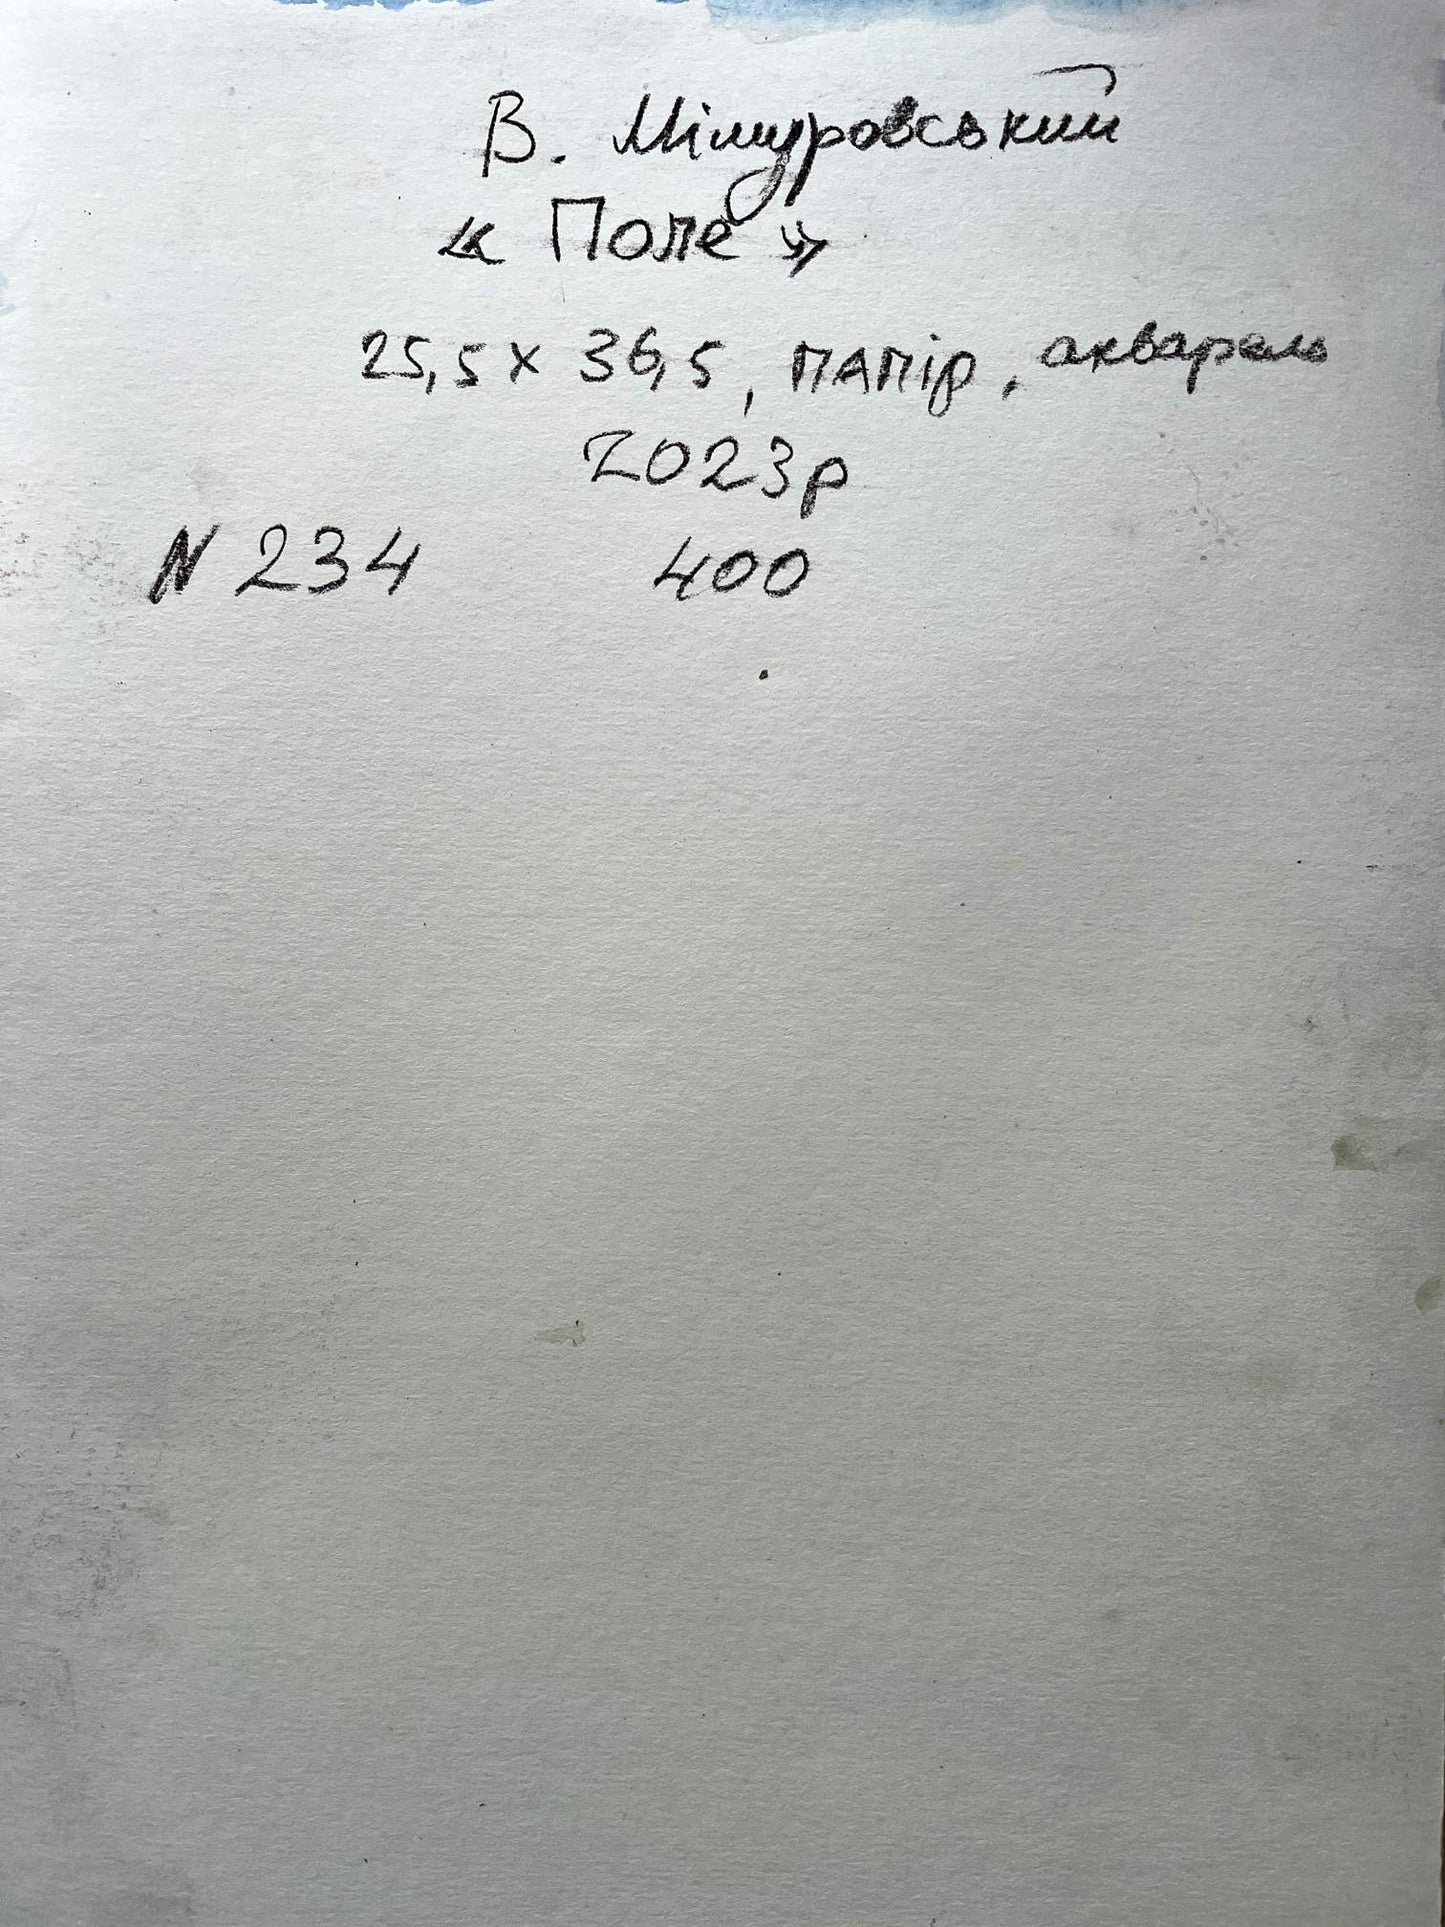 В. Мішуровський
« Поле »
25,5 х 36,5, папір, акварель
2023р
N 234 400